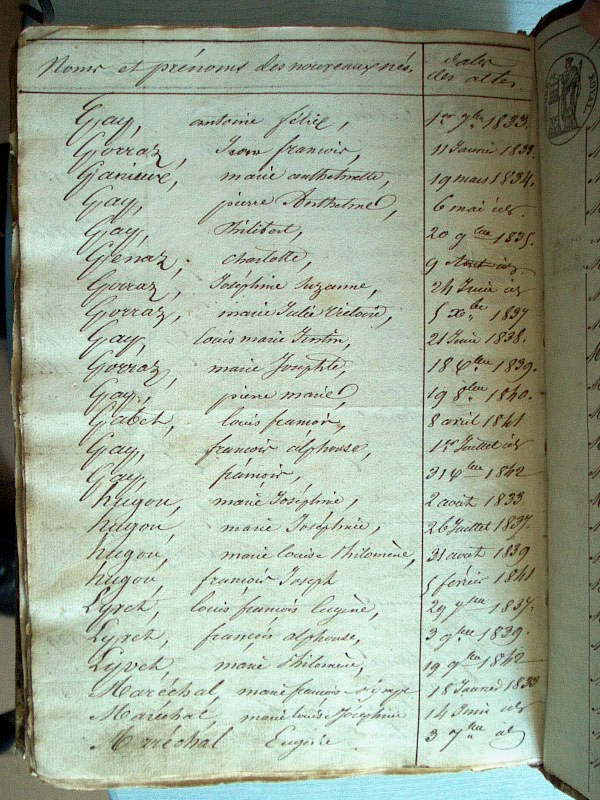 Noms et prénoms des nouveaux nés. dates des actes.
Gay, antoine félix, 1er 7bre 1833.
Gorraz, Jean françois, 11 Janvier 1833
Ganieure, marie anthelmette, 19 mars 1834.
Gay, pierre Anthelme, 6 mai id.
Gay, Philibert, 20 9bre 1835.
Genaz, charlotte, 9 Avril id
Gorraz, Joséphine Suzanne, 24 Juin id
Gorraz, marie Julie Victoire, 5 Xbre 1837
Gay, louis marie 21 Juin 1838.
Gorraz, marie Josephte, 18 1839.
Gay, pierre marie, 19 8bre 1840.
Gabet, louis françois, 8 avril 1841
Gay, françois alphonse, 1er Juillet id
Gay, françois, 31 1842
hugou, marie Joséphine, 2 août 1833
hugou, marie Joséphine, 26 Juillet 1837.
hugou, marie louise Philomène, 31 août 1839
hugou, françois Joseph 5 février 1841
Lyret, louis françois Eugène, 29 1837.
Lyret, françois alphonse, 3 9bre 1839.
Lyret, marie Philomène, 19 1842
Maréchal, marie françoise olympe 18 Janvier 1833
Maréchal, marie louise Joséphine 14 Juin id
Maréchal Eugénie 3 7bre id